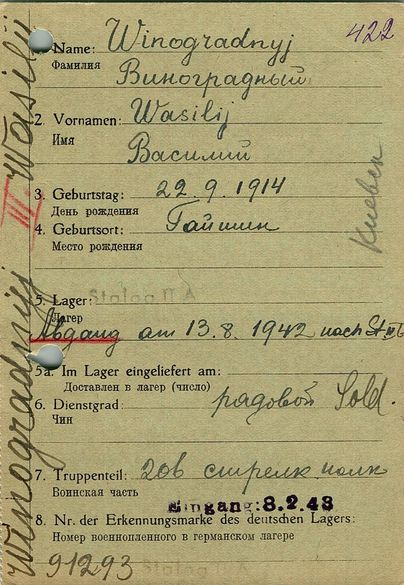 422
1. Name: Winogradnyj
Фамилия
Виноградный
2. Vornamen: Wasilij
Имя
Василий
3. Geburtstag: 22.9.1914
День рождения
4. Geburtsort: Гайшин
Место рождения
Киевск
5. Lager: Stalag II A
Лагер
Abgang am 13.8.1942 nach St.
5a. Im Lager eingeliefert am:
Доставлен в лагер (число)
6. Dienstgrad: рядовой Sold.
Чин
7. Truppenteil: 206 стрелк полк
Воинская часть
Eingang: 8.2.43
8. Nr. der Erkennungsmarke des deutschen Lagers:
Номер военнопленного в германском лагере
91293 Stalag II A
Winogradnyj III Wasilij